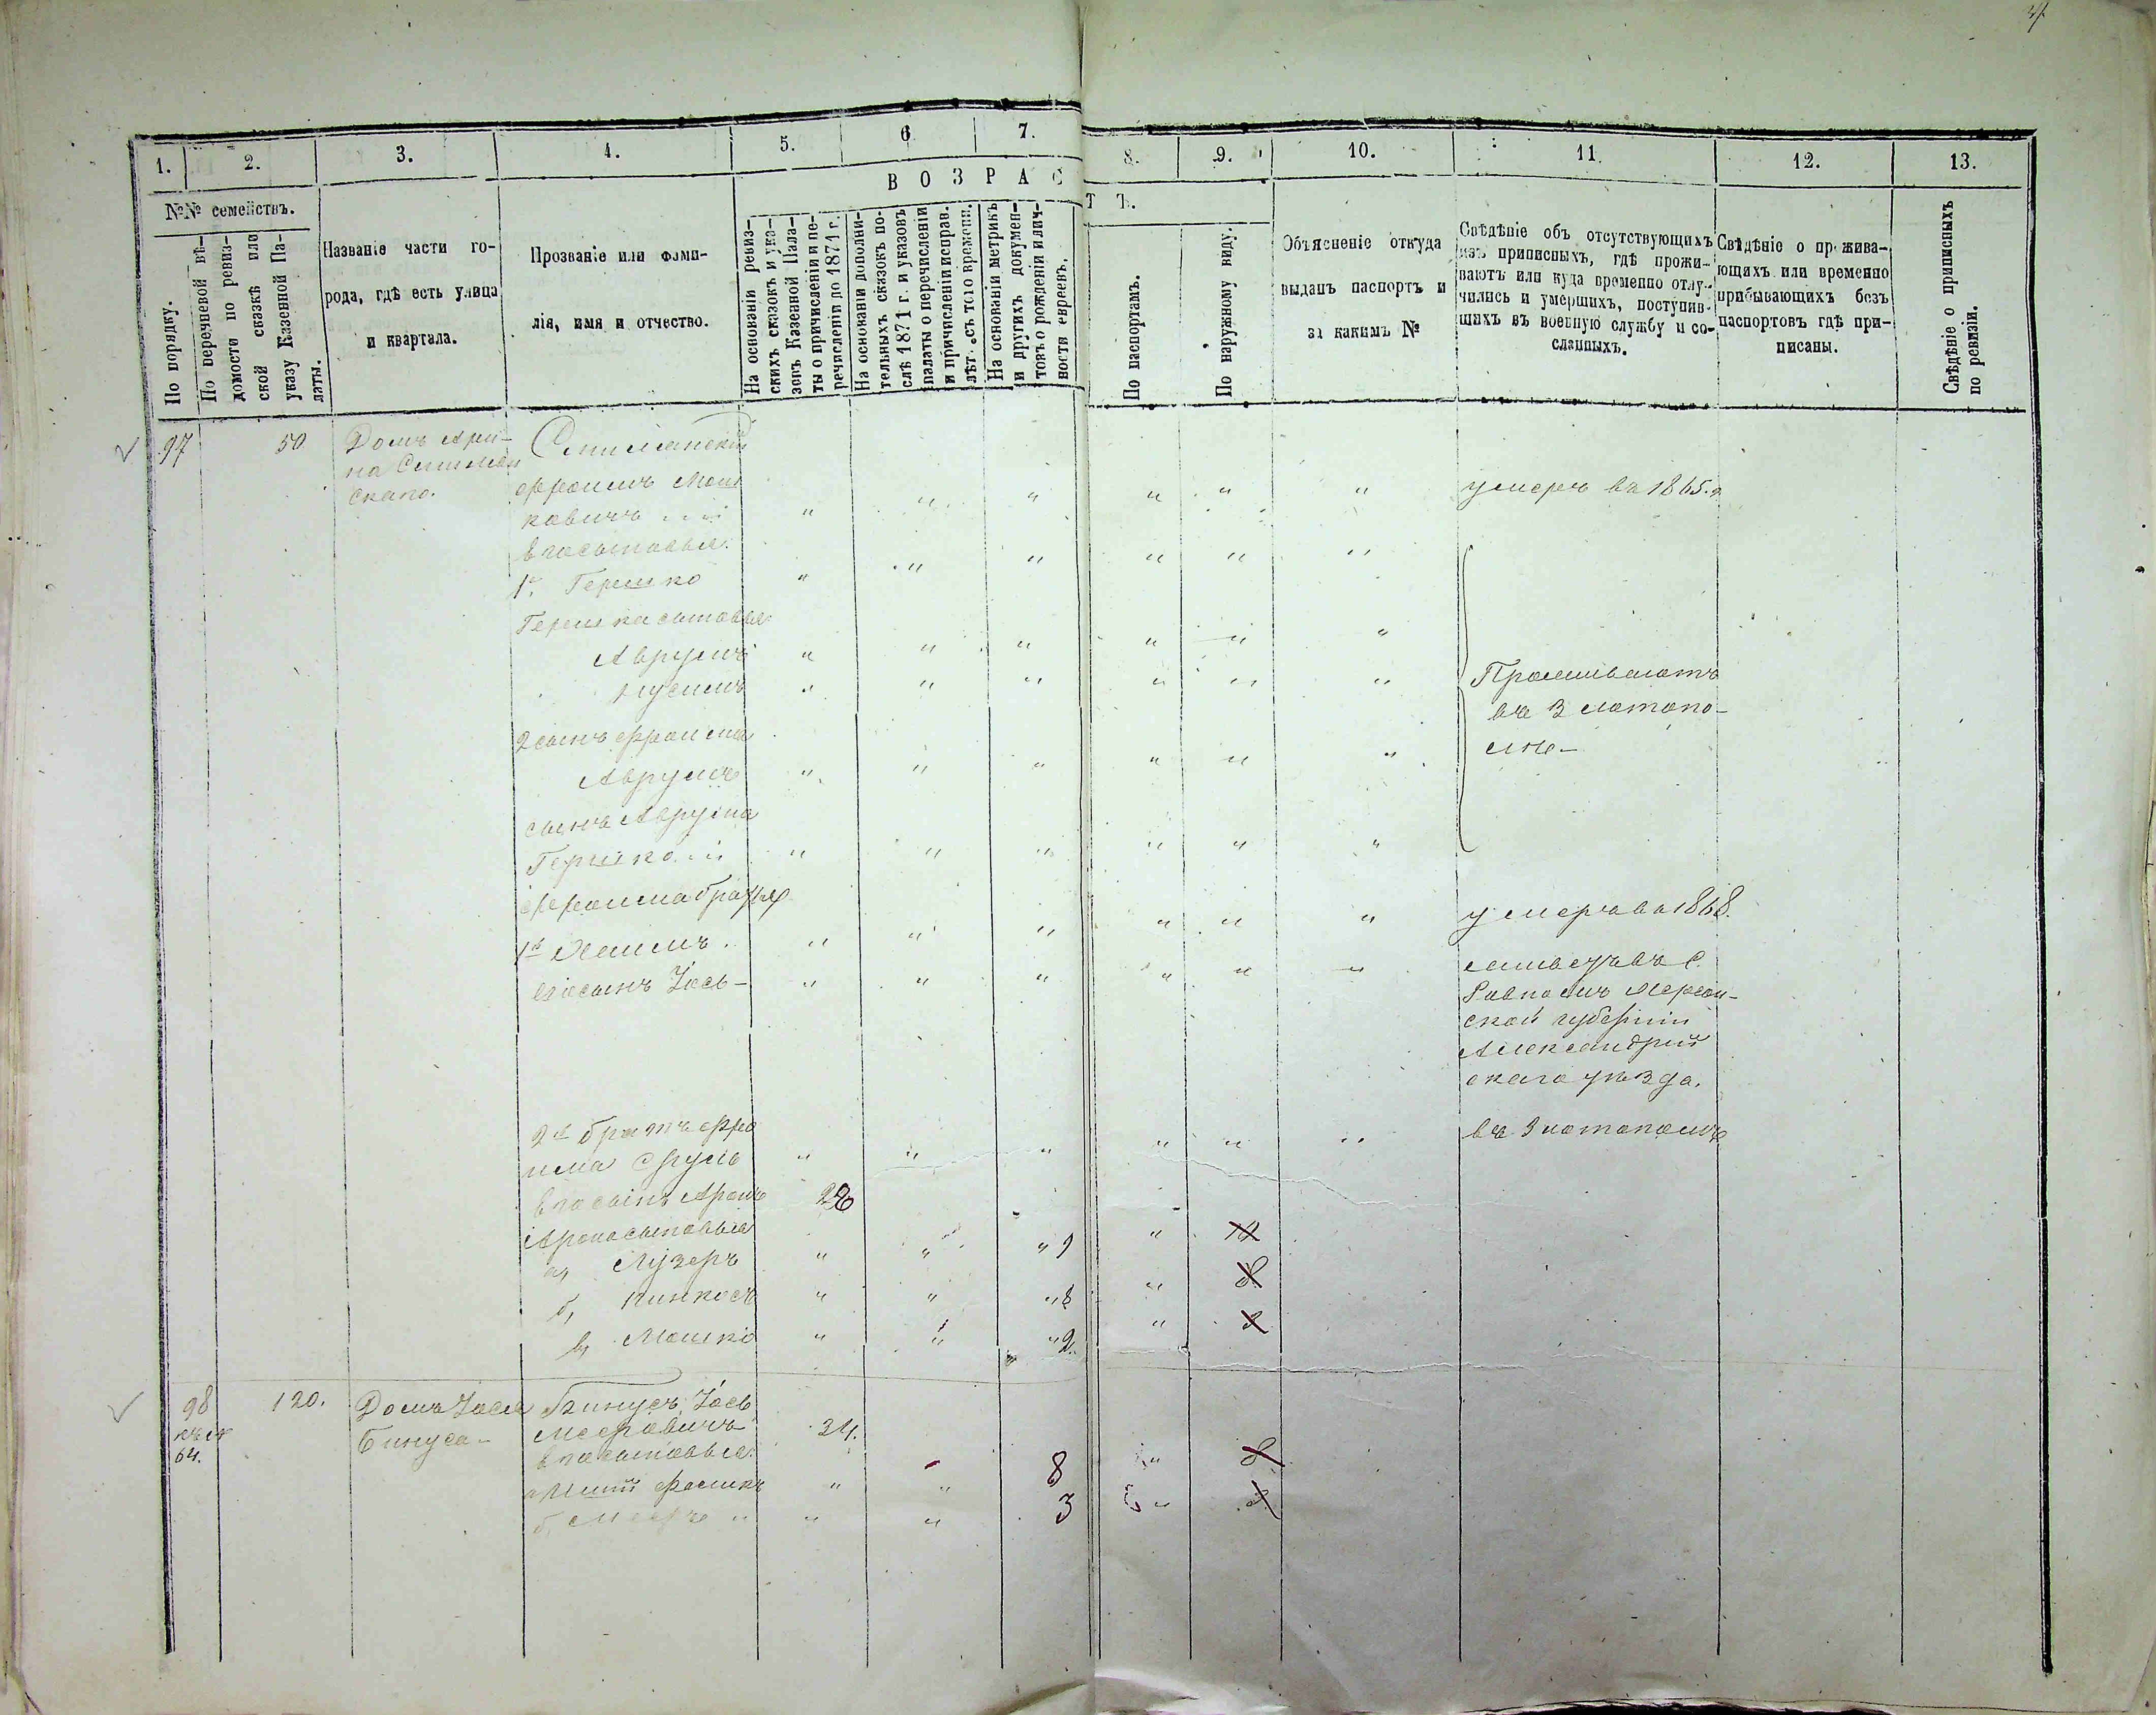 1.
2.
3.
4.
5.
6
7.
8.
9.
10.
11.
12.
13.
ВОЗРАС
ТЪ.
№№ семействъ.
По порядку.
По перечневой вѣ-
домости по ревиз-
ской сказкѣ или
указу Казенной Па-
латы.
Названіе части го-
рода, гдѣ есть улица
и квартала.
Прозваніе или фами-
лія, имя и отчество.
На основаніи ревиз-
скихъ сказокъ и ука-
зовъ Казенной Пала-
ты о причисленіи и пе-
речисленіи до 1871 г.
На основаніи дополни-
тельныхъ сказокъ по-
слѣ 1871 г. и указовъ
палаты о перечисленіи
и причисленіи исправ.
лѣт. съ того времени.
На основаніи метрикъ
и другихъ докумен-
товъ о рожденіи и лич-
ности евреевъ.
По паспортамъ.
По наружному виду.
Объясненіе откуда
выданъ паспортъ и
за какимъ №
Свѣдѣніе объ отсутствующихъ
изъ приписныхъ, гдѣ прожи-
ваютъ или куда временно отлу-
чились и умершихъ, поступив-
шихъ въ военную службу и со-
сланныхъ.
Свѣдѣніе о прожива-
ющихъ или временно
прибывающихъ безъ
паспортовъ гдѣ при-
писаны.
Свѣдѣніе о приписныхъ
по ревизіи.
97
50
Домъ Аро-
на
скаго.
Фроимъ Мош
ковичъ
умеръ въ 1865 г.
его сыновья:
1й Гершко
Гершка сыновья
Аврумъ
Нусимъ
Проживаютъ
въ Златопо-
лѣ-
2 сынъ Фроима
Аврумъ
сынъ Аврума
Гершко
Фроима братья
1й Хаимъ.
умеръ въ 1868.
его сынъ Іось-
живетъ въ с.
Херсон-
ской губерніи
Александрій
скаго уѣзда.
2й братъ Фро
има Сруль
въ Златополѣ
его сынъ Аронъ
Арона сыновья
а, Лузеръ
9
б, Пинхосъ
8
в, Мошко
2
98
64.
120.
Домъ Іося
Бинуса-
Бинусъ Іось
Мееровичъ
34.
его сыновья:
8
б, Мееръ
3